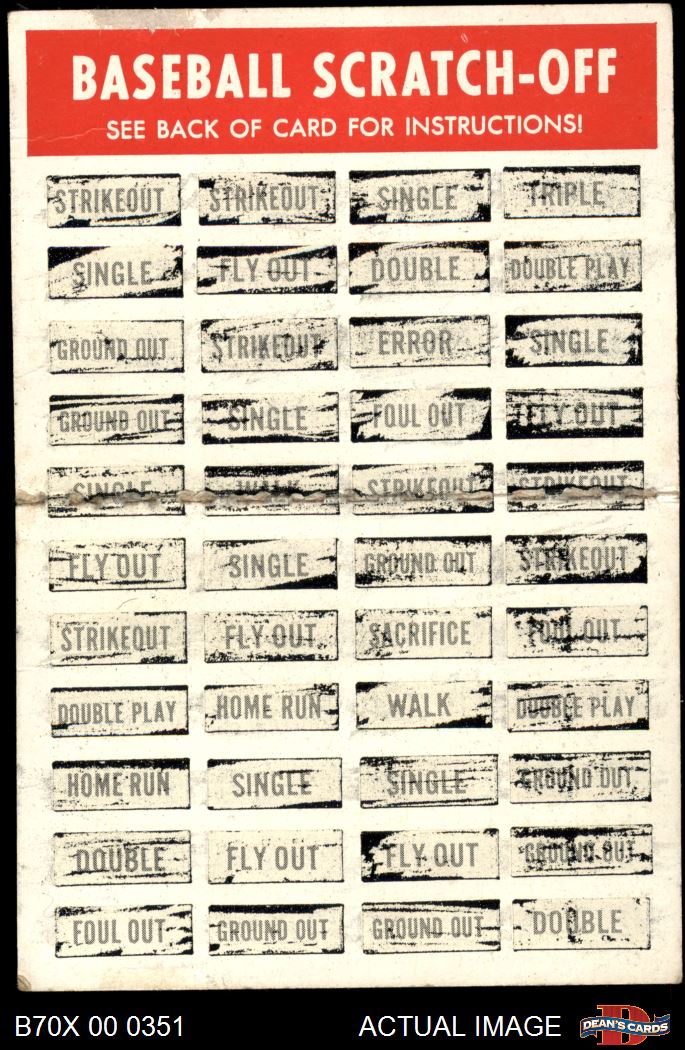 BASEBALL SCRATCH-OFF
SEE BACK OF CARD FOR INSTRUCTIONS!
STRIKEOUT STRIKEOUT SINGLE TRIPLE
SINGLE FLY OUT DOUBLE DOUBLE PLAY
GROUND OUT STRIKEOUT ERROR SINGLE
GROUND OUT SINGLE FOUL OUT FLY OUT
SINGLE WALK STRIKEOUT STRIKEOUT
FLY OUT SINGLE GROUND OUT STRIKEOUT
STRIKEOUT FLY OUT SACRIFICE FOUL OUT
DOUBLE PLAY HOME RUN WALK DOUBLE PLAY
HOME RUN SINGLE SINGLE GROUND OUT
DOUBLE FLY OUT FLY OUT GROUND OUT
FOUL OUT GROUND OUT GROUND OUT DOUBLE
B70X 00 0351 ACTUAL IMAGE DEAN'S CARDS